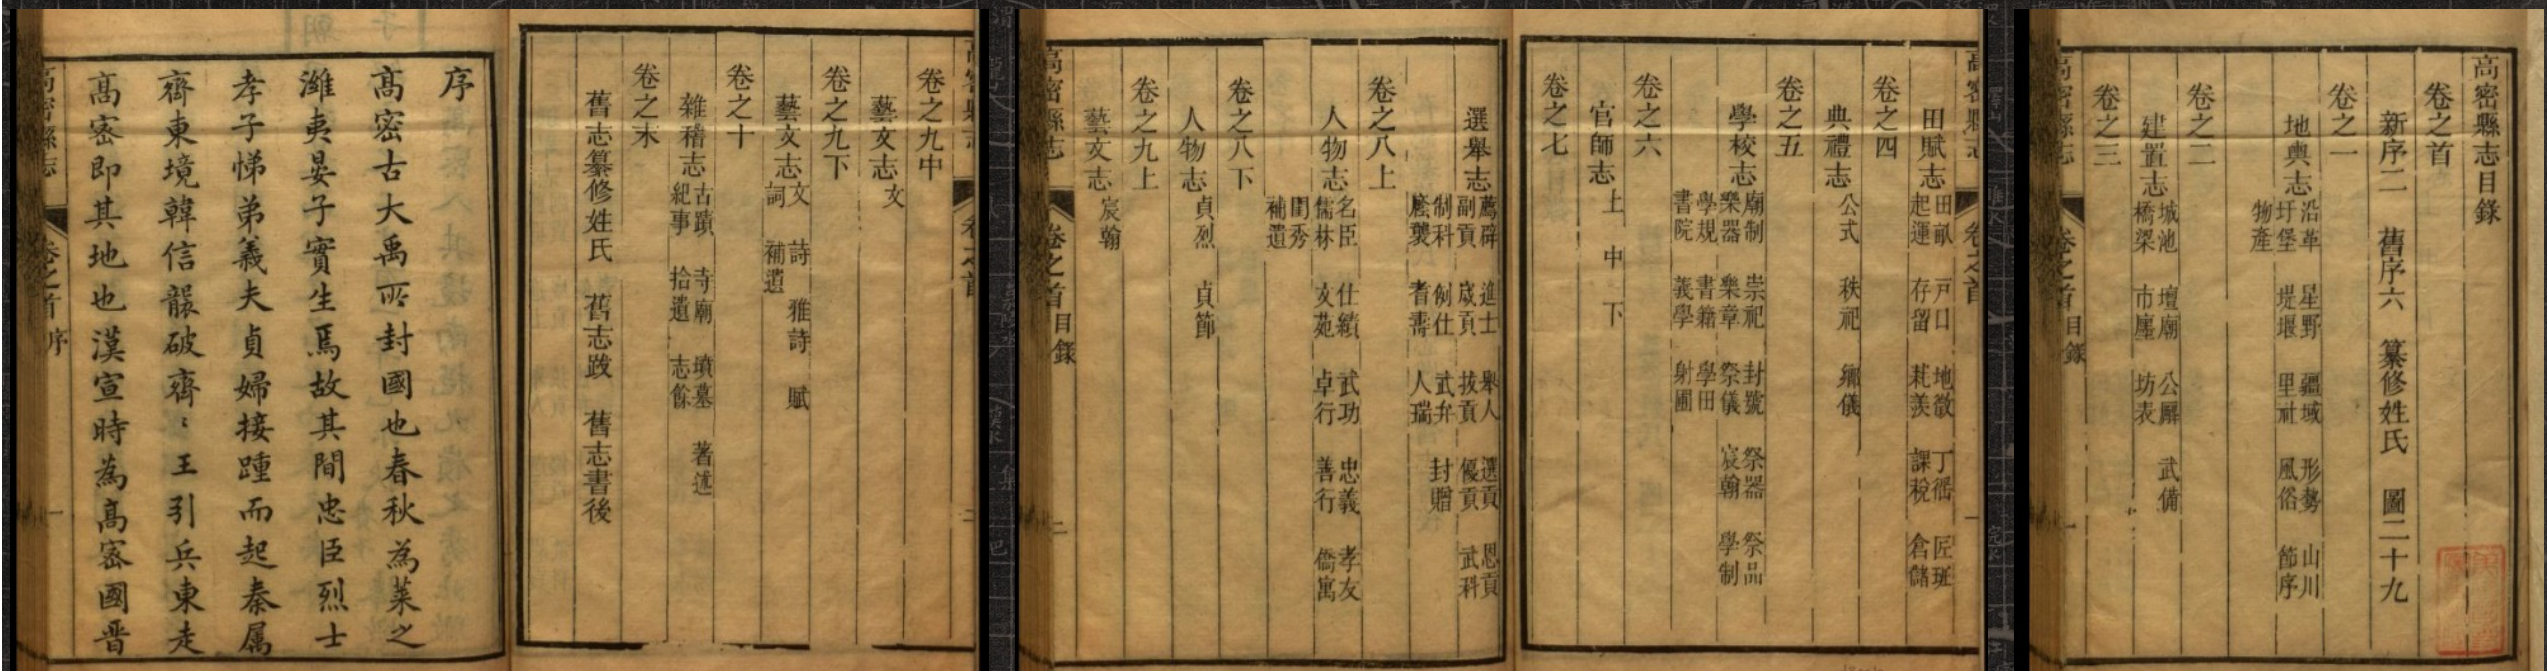 高密縣志目錄
卷之首
新序二 舊序六 纂修姓氏 圖二十九
卷之一
地輿志 沿革 星野 疆域 形勢 山川
圩堡 堤堰 里社 風俗 節序
物產
卷之二
建置志 城池 壇廟 公廨 武備
橋梁 市廛 坊表
卷之三
高密縣志 卷之首 目錄 一
田賦志 田畝 戶口 地徵 丁徭 匠班
起運 存留 耗羨 課稅 倉儲
卷之四
典禮志 公式 秩祀 鄉儀
卷之五
學校志 廟制 崇祀 封號 祭器 祭品
樂器 樂章 祭儀 宸翰 學制
學規 書籍 學田
書院 義學 射圃
卷之六
官師志 上 中 下
卷之七
選舉志 薦辟 進士 舉人 選貢 恩貢
副貢 歲貢 拔貢 優貢 武科
制科 例仕 武弁 封贈
廕襲 耆壽 人瑞
卷之八上
人物志 名臣 仕績 武功 忠義 孝友
儒林 文苑 卓行 善行 僑寓
閨秀
補遺
卷之八下
人物志 貞烈 貞節
卷之九上
藝文志 宸翰
高密縣志 卷之首 目錄 二
卷之九中
藝文志 文
卷之九下
藝文志 文 詩 雅詩 賦
詞 補遺
卷之十
雜稽志 古蹟 寺廟 墳墓 著述
紀事 拾遺 志餘
卷之末
舊志纂修姓氏 舊志跋 舊志書後
序
高密古大禹所封國也春秋為萊之
濰夷晏子實生焉故其間忠臣烈士
孝子悌弟義夫貞婦接踵而起秦属
齊東境韓信襲破齊齊王引兵東走
高密即其地也漢宣時為高密國晋
高密縣志 卷之首 序 一